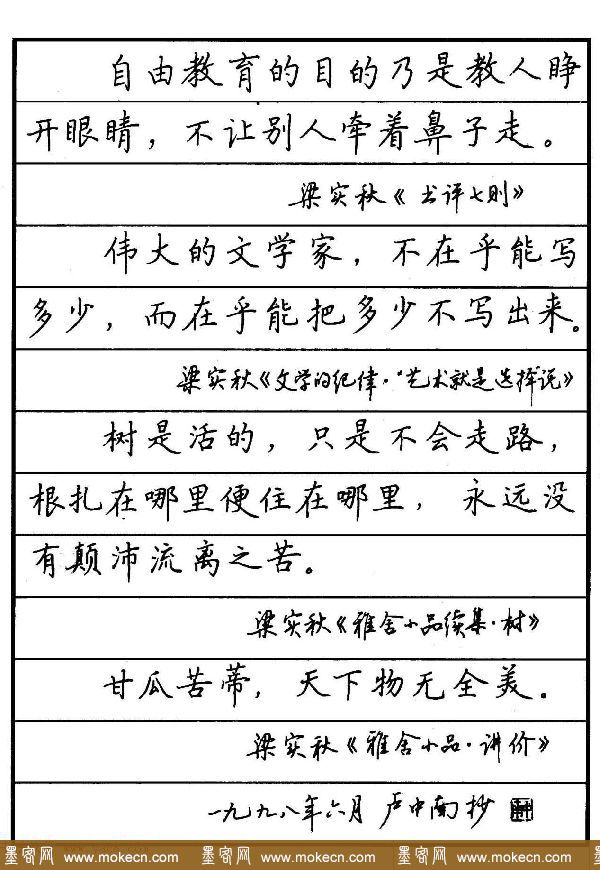 自由教育的目的乃是教人睁
开眼睛，不让别人牵着鼻子走。
梁实秋《书评七则》
伟大的文学家，不在乎能写
多少，而在乎能把多少不写出来。
梁实秋《文学的纪律·"艺术就是选择说》
树是活的，只是不会走路，
根扎在哪里便住在哪里，永远没
有颠沛流离之苦。
梁实秋《雅舍小品续集·树》
甘瓜苦蒂，天下物无全美。
梁实秋《雅舍小品·讲价》
一九九八年六月 卢中南抄
墨客网 www.mokecn.com 墨客网 www.mokecn.com 墨客网 www.mokecn.com